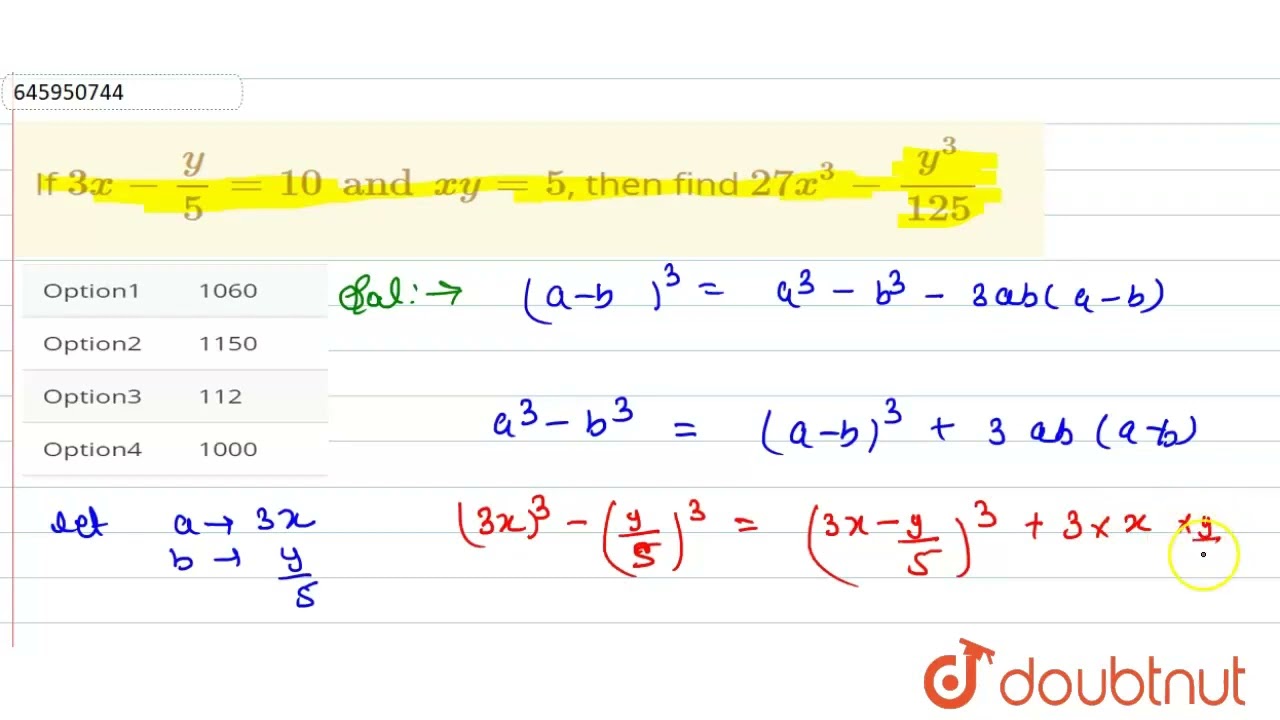 645950744
If 3x − y/5 = 10 and xy = 5, then find 27x³ − y³/125
Option1 1060
Option2 1150
Option3 112
Option4 1000
Sol:→ (a−b)³ = a³ − b³ − 3ab(a−b)
a³ − b³ = (a−b)³ + 3ab(a−b)
let a → 3x
b → y/5
(3x)³ − (y/5)³ = (3x − y/5)³ + 3 × x × y
doubtnut